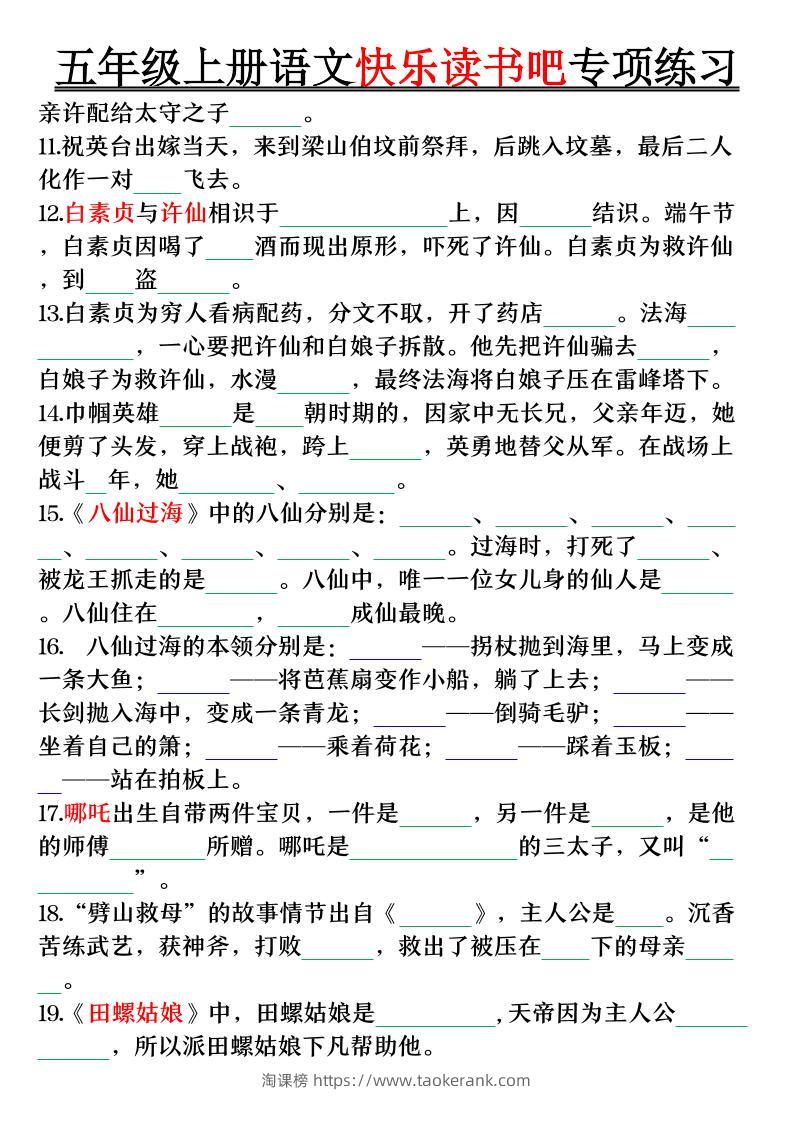 五年级上册语文快乐读书吧专项练习
亲许配给太守之子______。
11.祝英台出嫁当天，来到梁山伯坟前祭拜，后跳入坟墓，最后二人
化作一对____飞去。
12.白素贞与许仙相识于______________上，因______结识。端午节
，白素贞因喝了____酒而现出原形，吓死了许仙。白素贞为救许仙
，到____盗______。
13.白素贞为穷人看病配药，分文不取，开了药店______。法海____
________，一心要把许仙和白娘子拆散。他先把许仙骗去______，
白娘子为救许仙，水漫______，最终法海将白娘子压在雷峰塔下。
14.巾帼英雄______是____朝时期的，因家中无长兄，父亲年迈，她
便剪了头发，穿上战袍，跨上______，英勇地替父从军。在战场上
战斗__年，她________、________。
15.《八仙过海》中的八仙分别是：______、______、______、____
__、______、______、______、______。过海时，打死了______、
被龙王抓走的是______。八仙中，唯一一位女儿身的仙人是______
。八仙住在________，______成仙最晚。
16. 八仙过海的本领分别是：______——拐杖抛到海里，马上变成
一条大鱼；______——将芭蕉扇变作小船，躺了上去；______——
长剑抛入海中，变成一条青龙；______——倒骑毛驴；______——
坐着自己的箫；______——乘着荷花；______——踩着玉板；____
__——站在拍板上。
17.哪吒出生自带两件宝贝，一件是______，另一件是______，是他
的师傅________所赠。哪吒是______________的三太子，又叫“__
________”。
18.“劈山救母”的故事情节出自《______》，主人公是____。沉香
苦练武艺，获神斧，打败______，救出了被压在____下的母亲____
__。
19.《田螺姑娘》中，田螺姑娘是__________,天帝因为主人公______
______，所以派田螺姑娘下凡帮助他。
淘课榜 https://www.taokerank.com